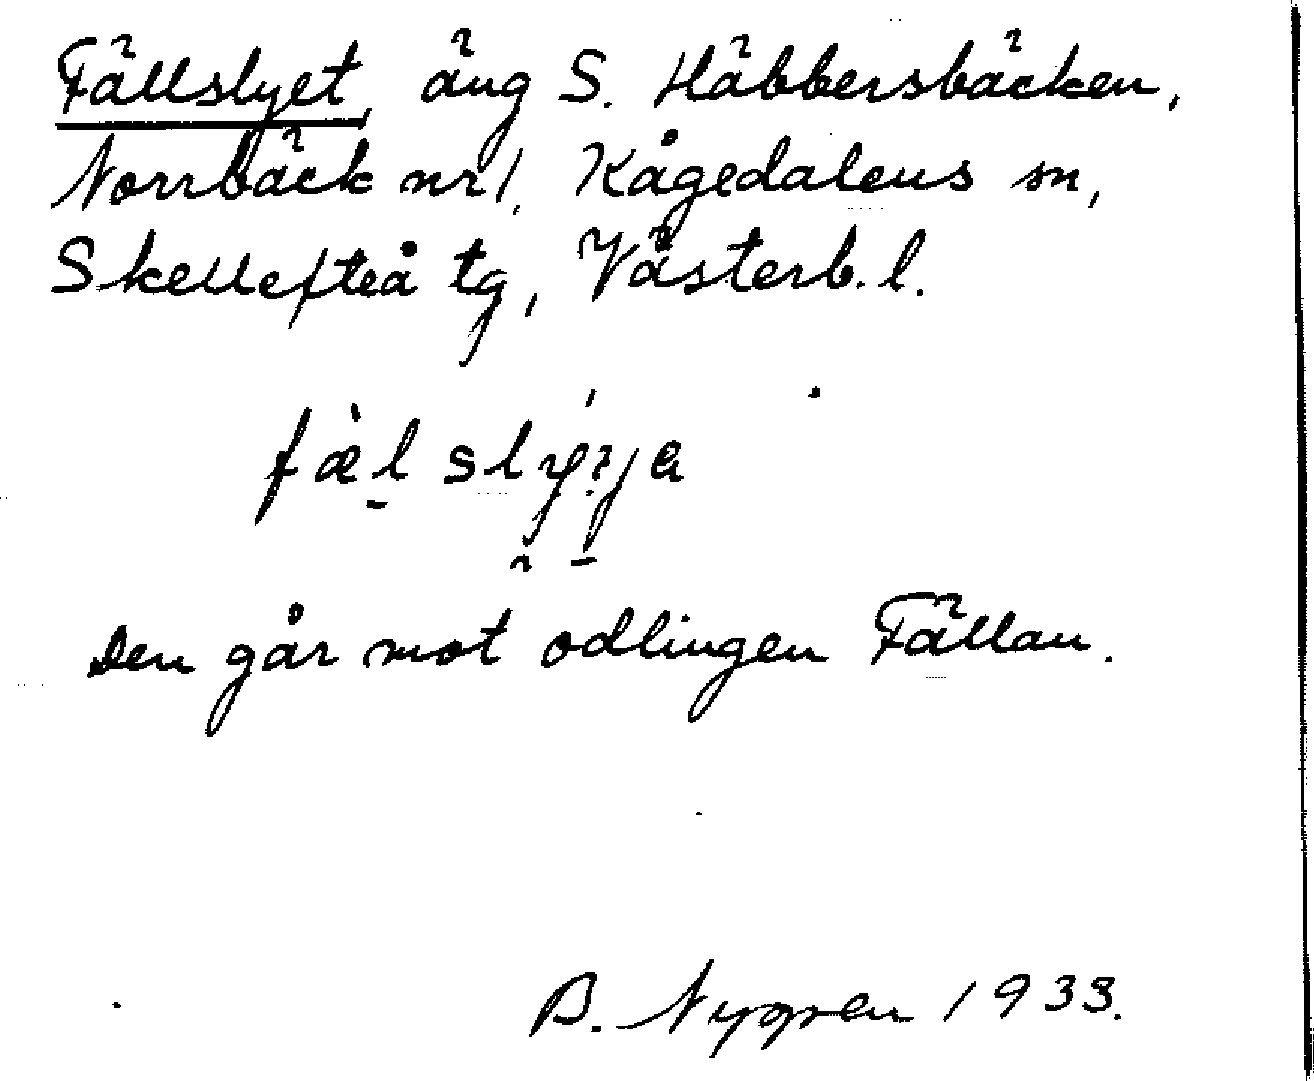 Fällslyet, äng S. Häbbersbäcken,
Norrbäck nr 1, Kågedalens sn,
Skellefteå tg, Västerb. l.
Den går mot odlingen Fällan.
B. Nygren 1933.